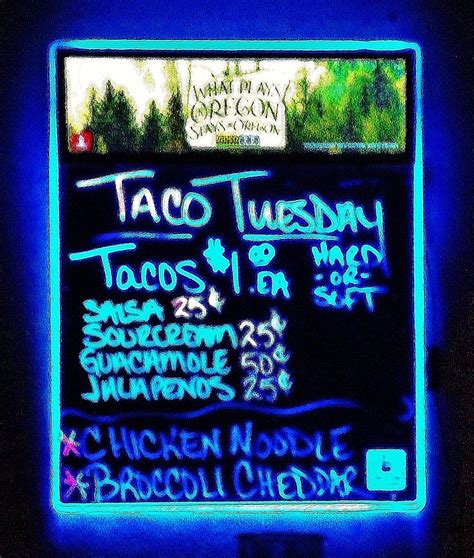 WHAT PLAYS
OREGON
STAYS IN OREGON
TACO TUESDAY
TACOS $1.00 EA HARD
-OR-
SOFT
SALSA 25¢
SOURCREAM 25¢
GUACAMOLE 50¢
JALAPENOS 25¢
*CHICKEN NOODLE
*BROCCOLI CHEDDAR